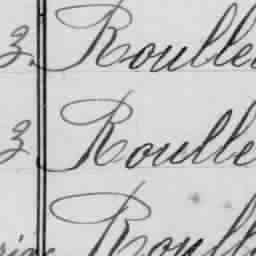 3. Roulle
3 Roulle
Roull